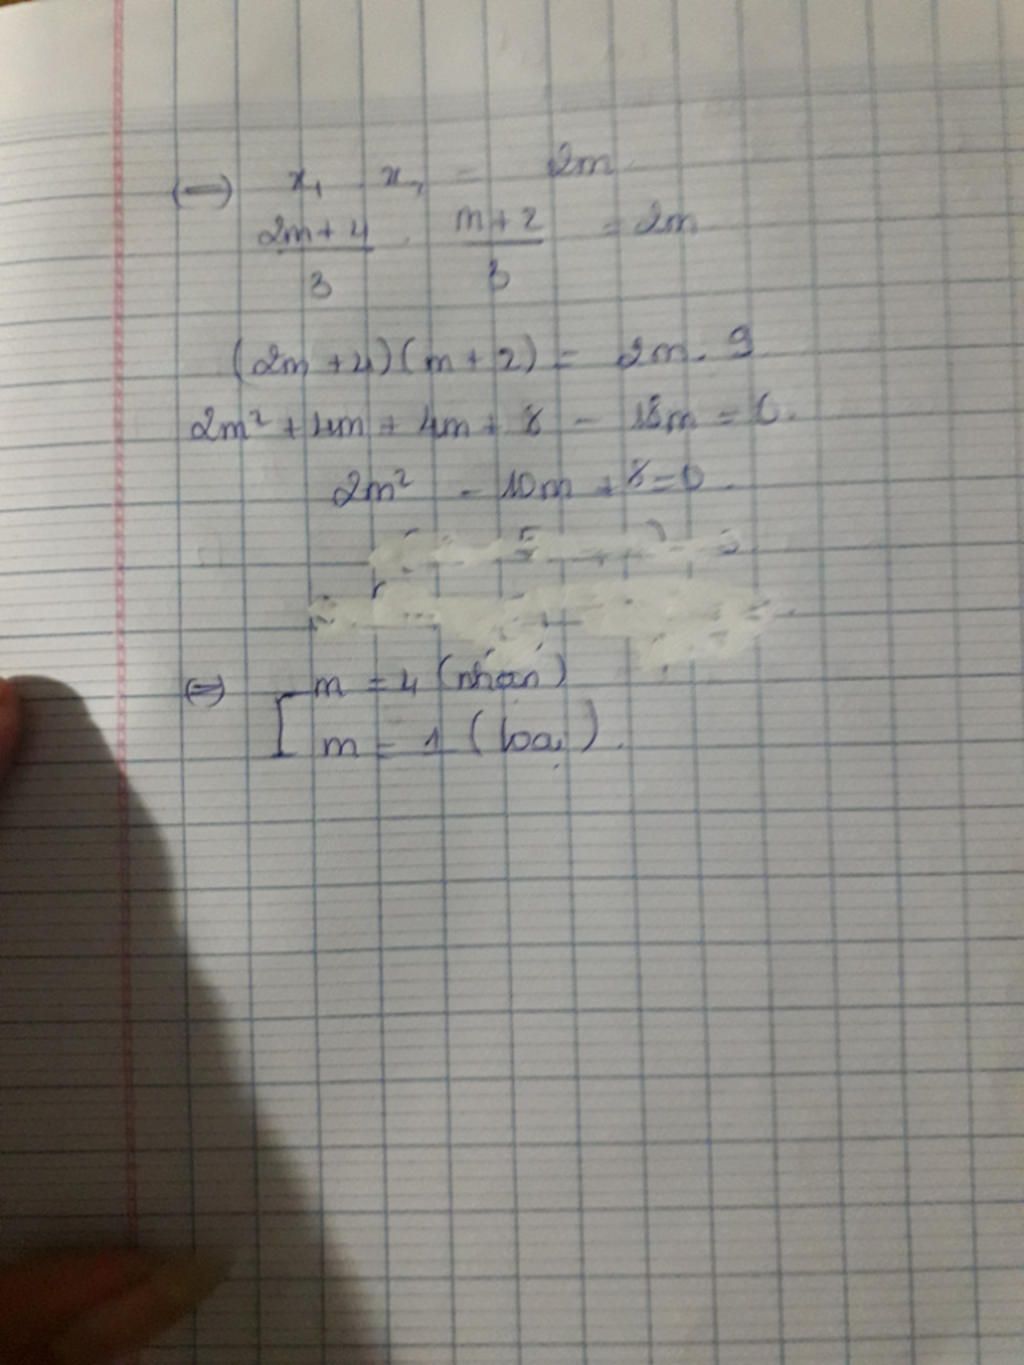 (=) x₁ x₂ = 2m
(2m+4)/3 . (m+2)/3 = 2m
(2m+4)(m+2) = 2m. 9
2m² + 4m + 4m + 8 - 18m = 0.
2m² - 10m + 8=0.
(=) [ m = 4 (nhận)
m = 1 (loại).